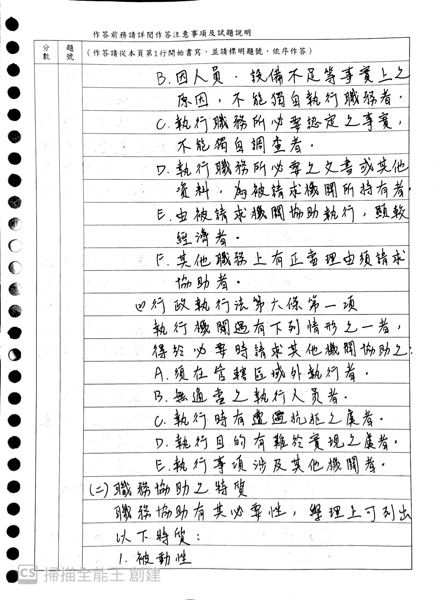 作答前務請詳閱作答注意事項及試題說明
分數
題號
(作答請從本頁第1行開始書寫,並請標明題號,依序作答)
B. 因人員、設備不足等事實上之
原因,不能獨自執行職務者。
C. 執行職務所必要認定之事實,
不能獨自調查者。
D. 執行職務所必要之文書或其他
資料,為被請求機關所持有者。
E. 由被請求機關協助執行,顯較
經濟者。
F. 其他職務上有正當理由須請求
協助者。
行政執行法第六條第一項
執行機關遇有下列情形之一者,
得於必要時請求其他機關協助之:
A. 須在管轄區域外執行者。
B. 無適當之執行人員者。
C. 執行時有遭遇抗拒之虞者。
D. 執行目的有難於實現之虞者。
E. 執行事項涉及其他機關者。
(二)職務協助之特質
職務協助有其必要性,學理上可列出
以下特質:
1. 被動性
CS 掃描全能王 創建